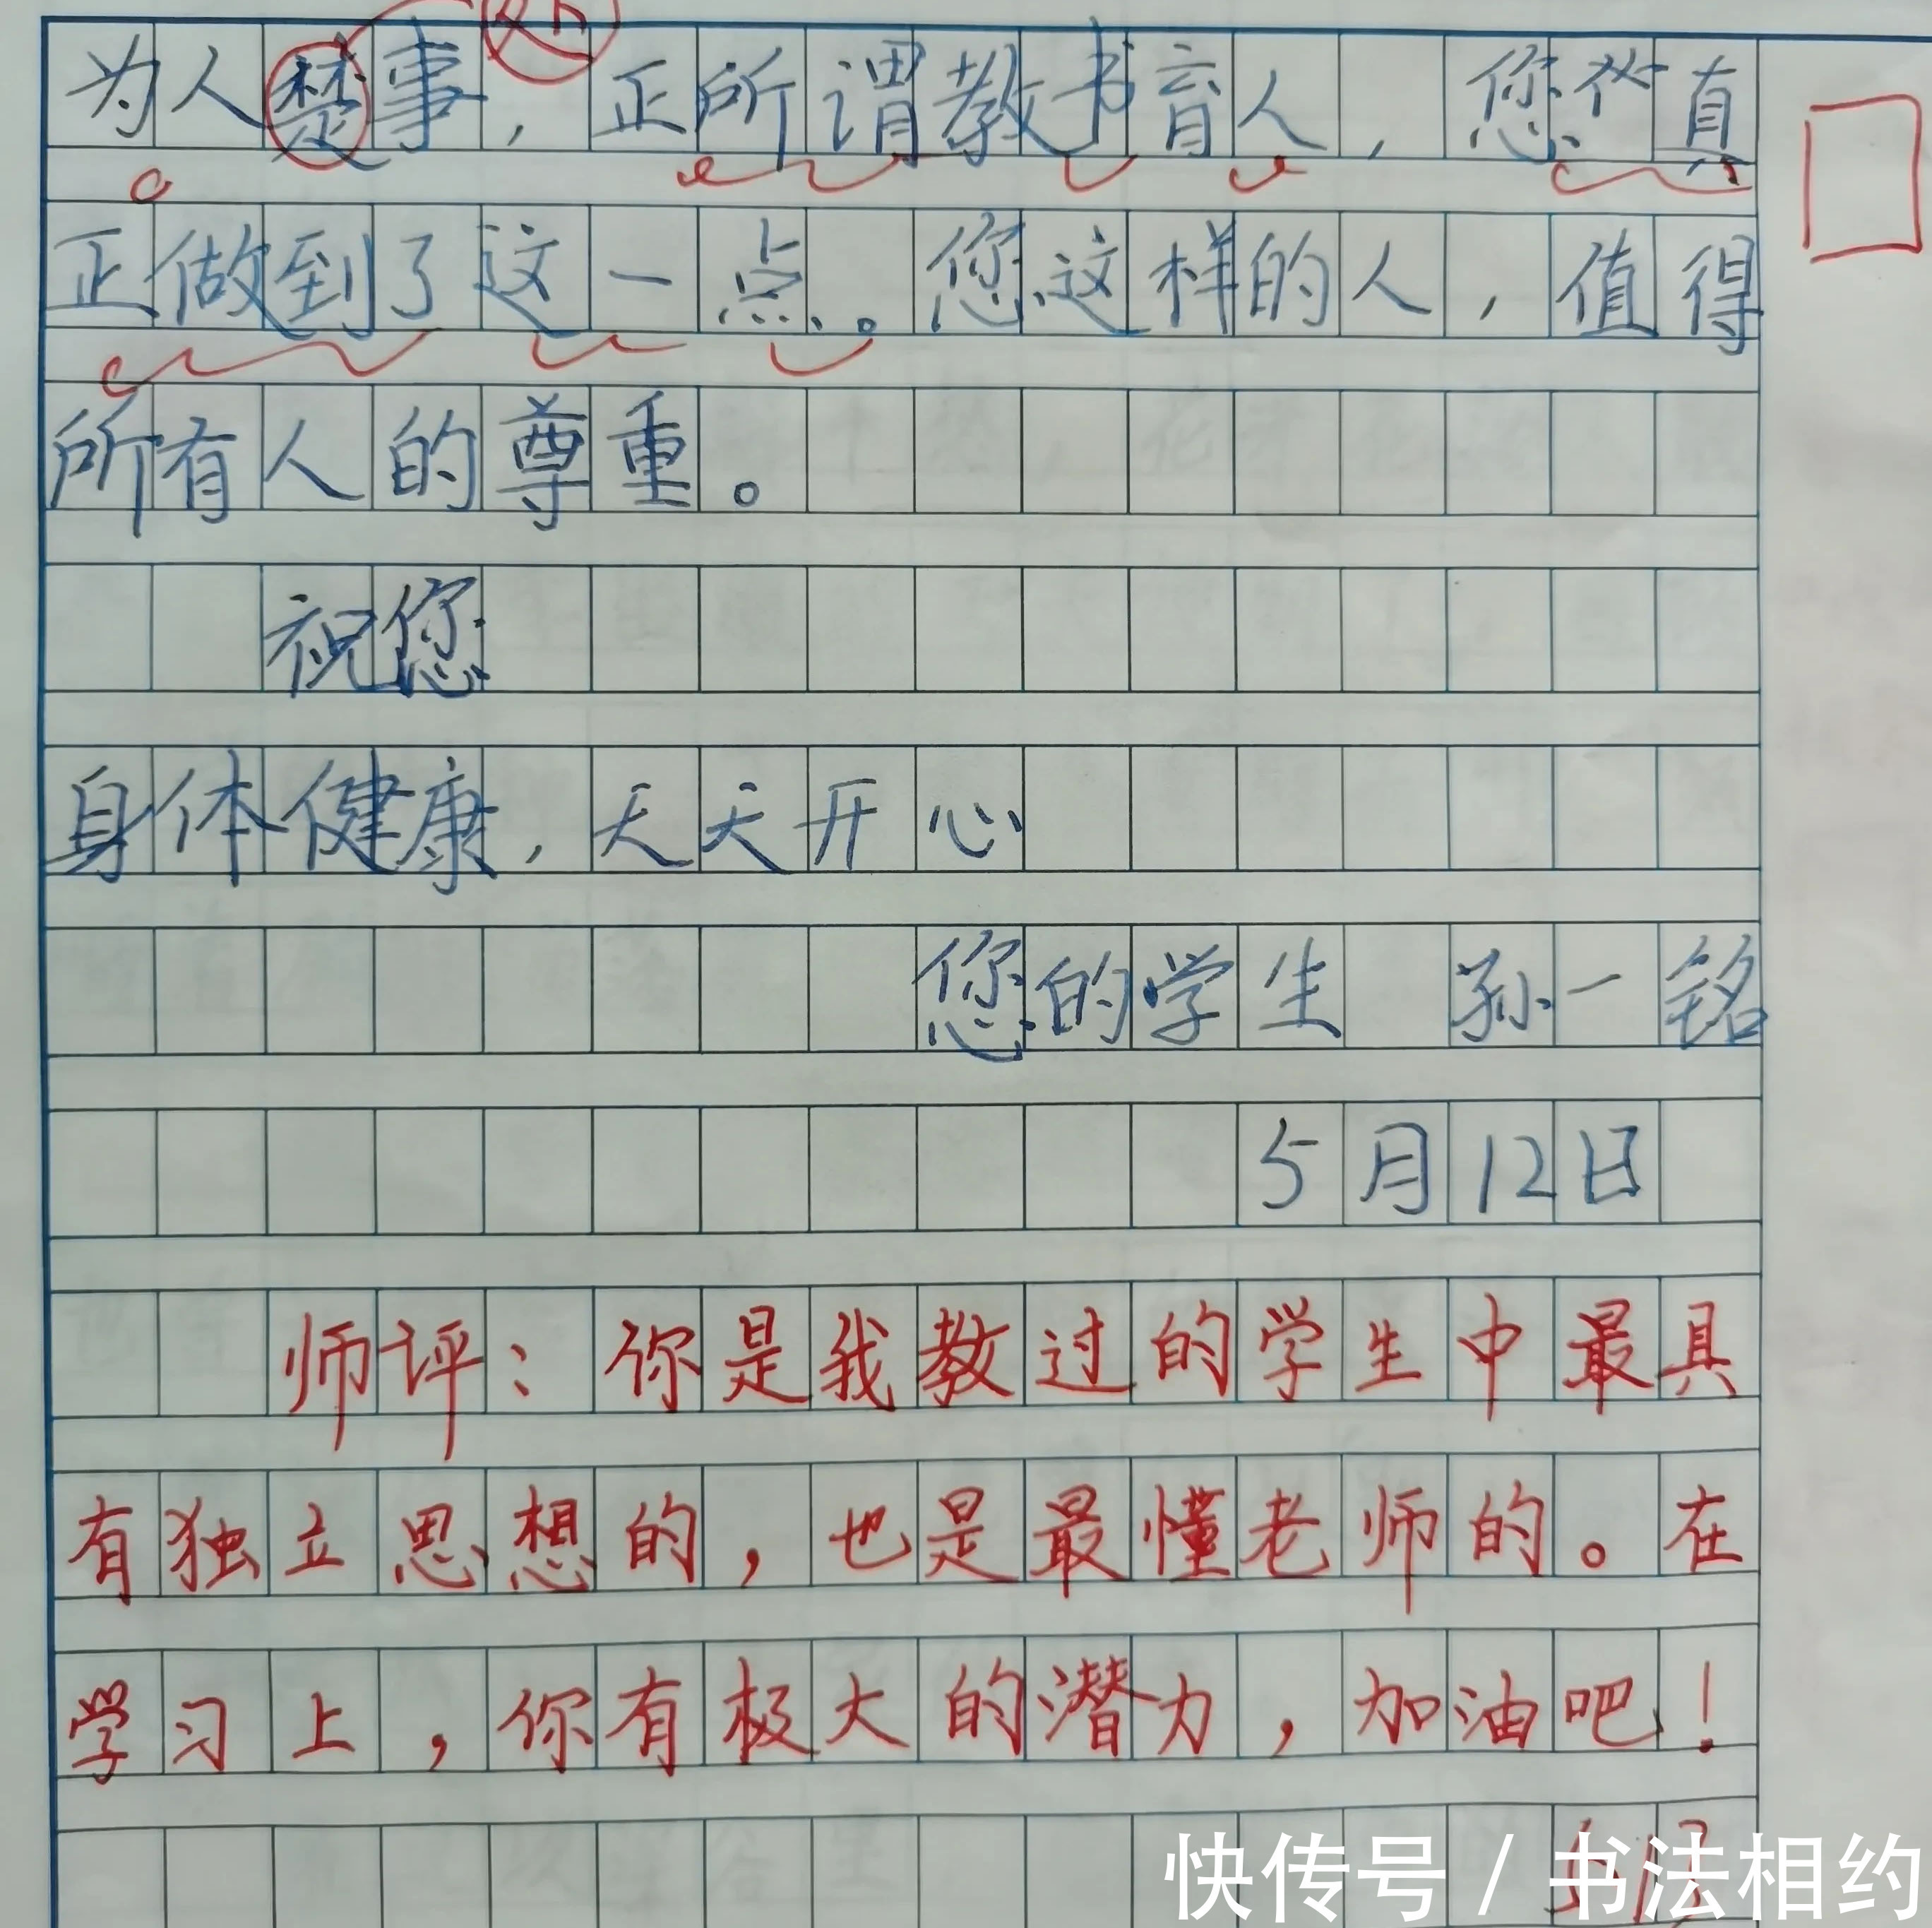 处
为人楚事，正所谓教书育人，您从真
正做到了这一点。您这样的人，值得
所有人的尊重。
祝您
身体健康，天天开心
您的学生 孙一铭
5月12日
师评：你是我教过的学生中最具
有独立思想的，也是最懂老师的。在
学习上，你有极大的潜力，加油吧！
快传号/书法相约